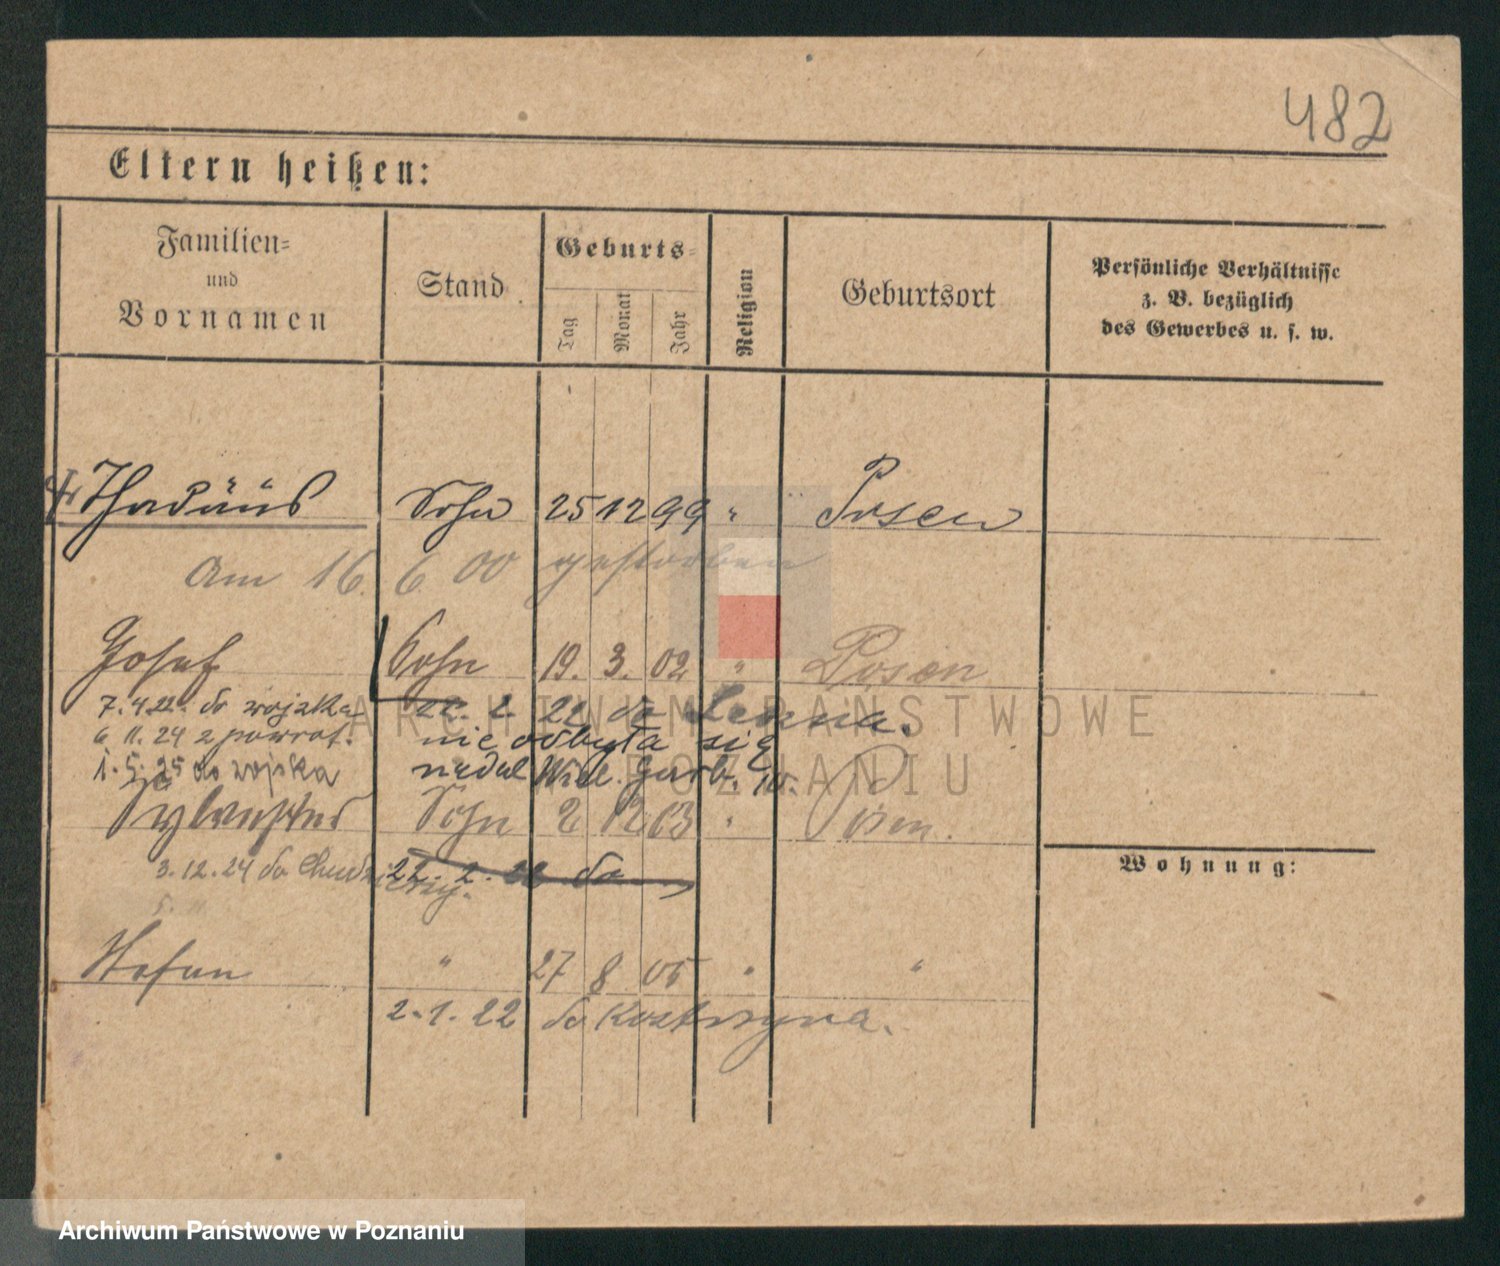 482
Eltern heißen:
Familien= und Vornamen
Stand
Geburts=
Tag
Monat
Jahr
Religion
Geburtsort
Persönliche Verhältnisse
z. B. bezüglich
des Gewerbes u. s. w.
Thadäus Sohn 25 12 99 " Posen
Am 16. 6. 00 gestorben
Josef Sohn 19. 3. 02 " Posen
7.4.22. do wojska 22. 2. 22 do
6 11. 24 z powrot. nie odbyła się
1. 5. 25 do wojska nadal Wiel. Garb.
Sylvester Sohn 2 12 03 " Posen.
Wohnung:
3.12.24 do 22. 2. 22 do
Stefan " 27 8 05 " "
2.1.22 do Kostrzyna.
ARCHIWUM PAŃSTWOWE
W POZNANIU
Archiwum Państwowe w Poznaniu